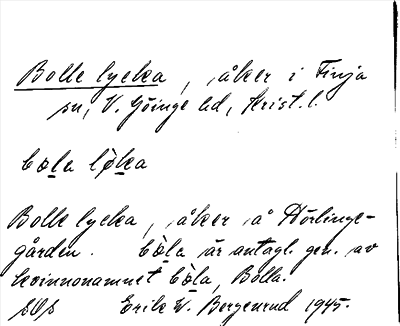 Bolle lycka, åker i Finja
sn, V. Göinge hd, Krist. l.
bọla lø̀ka
Bolle lycka, åker å Hörlinge-
gården. bọ̀la är antagl. gen. av
kvinnonamnet bọ̀la, Bolla.
Erik W. Bergenrud 1945.